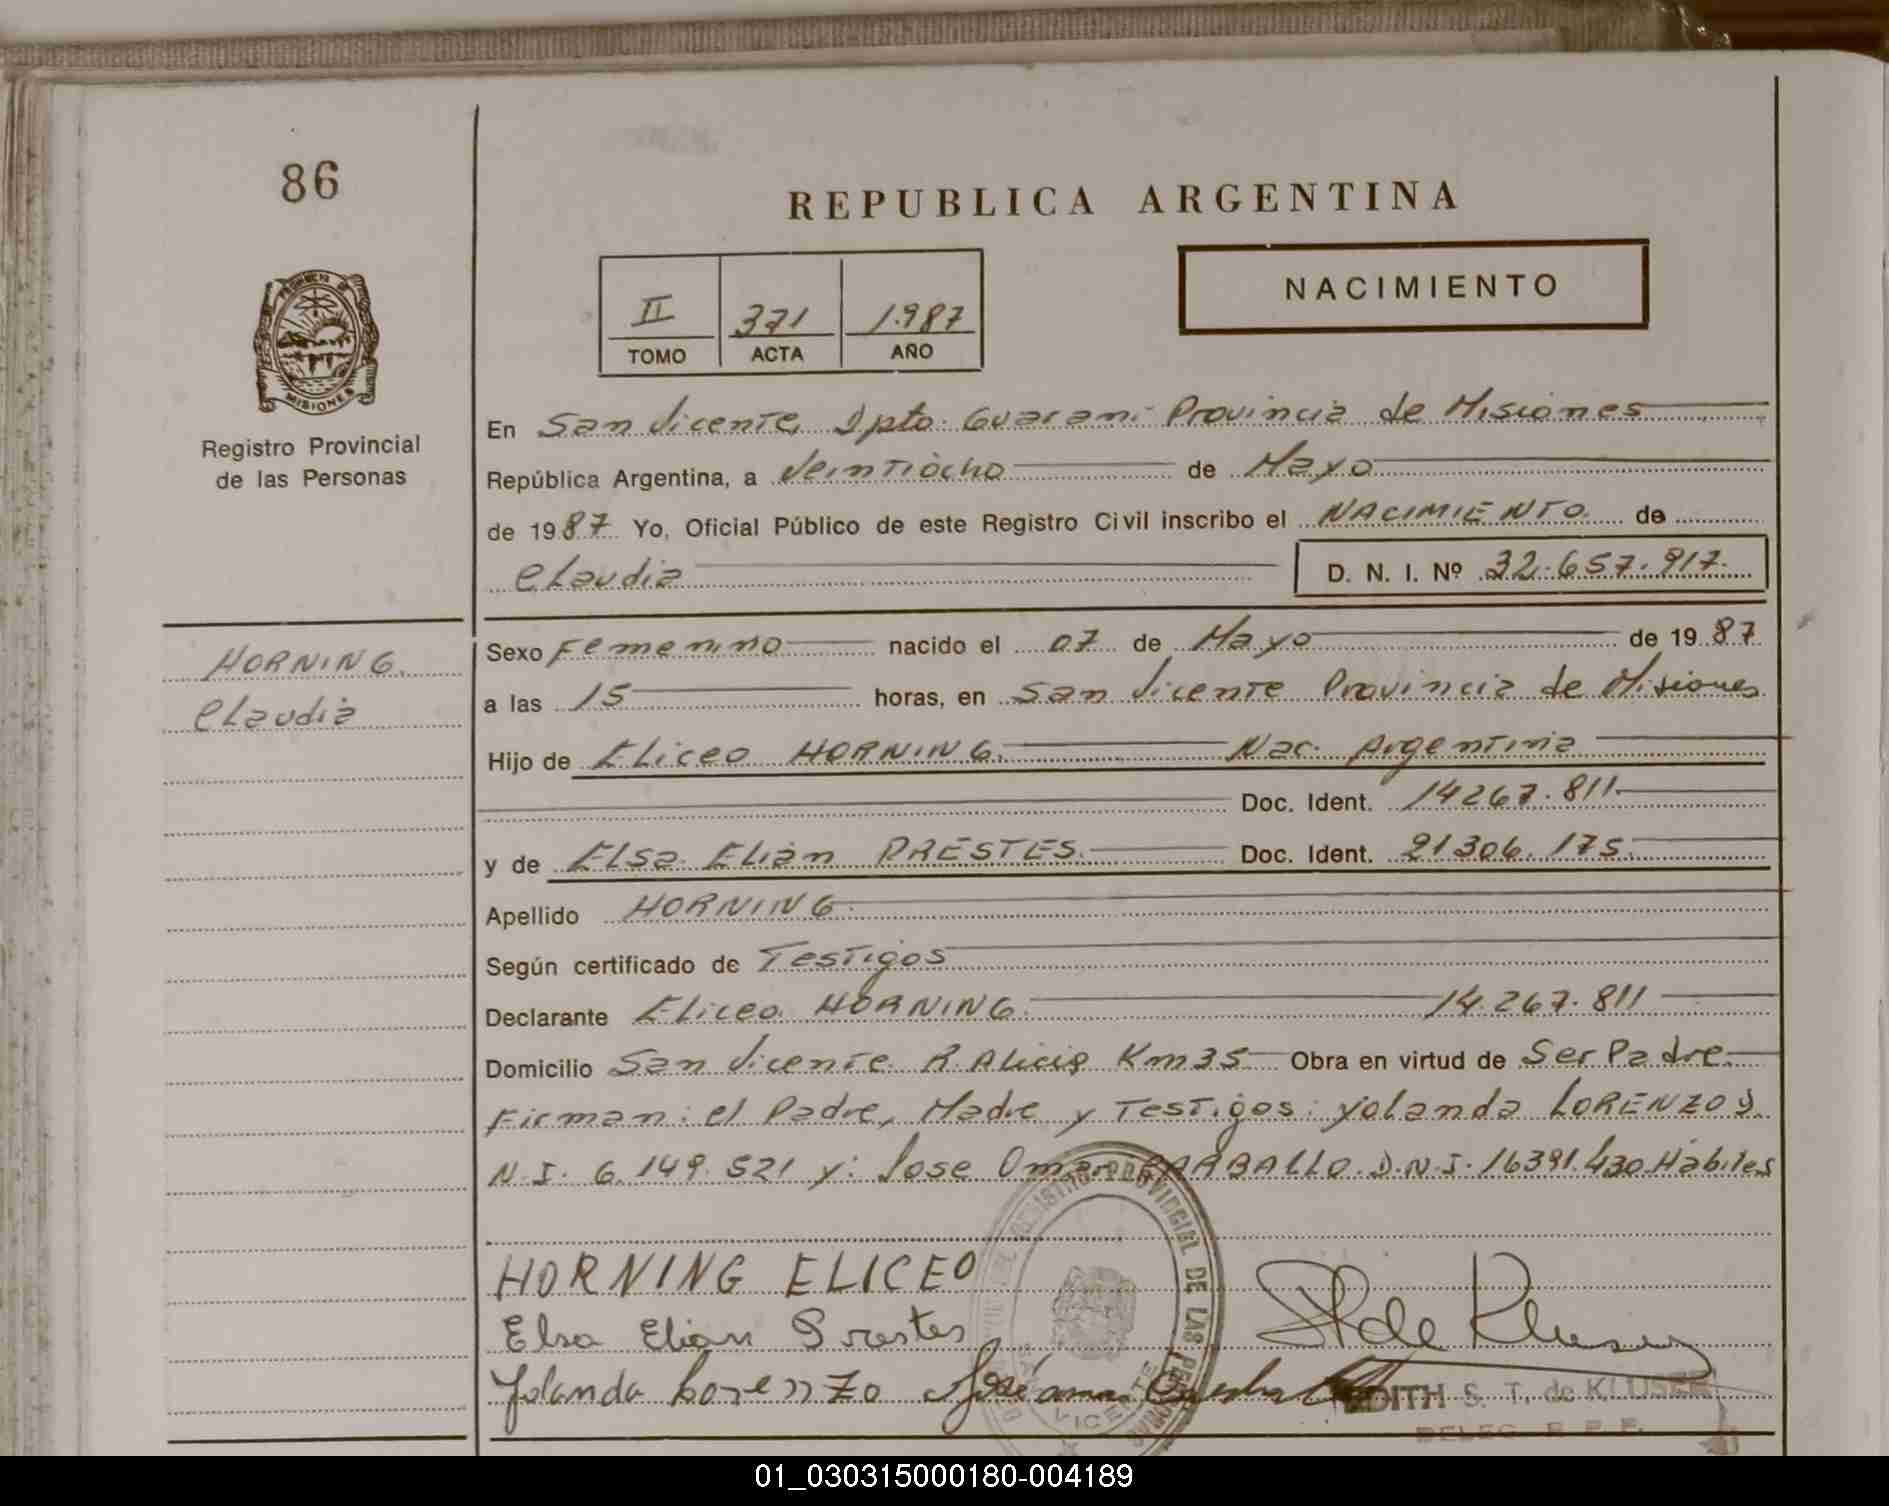 86
REPUBLICA ARGENTINA
NACIMIENTO
II 371 1.987
TOMO ACTA AÑO
PROVINCIA DE
MISIONES
Registro Provincial
de las Personas
En San Vicente, Dpto. Guarani Provincia de Misiones
República Argentina, a Veintiocho de Mayo
de 1987 Yo, Oficial Público de este Registro Civil inscribo el NACIMIENTO de
Claudia D. N. I. Nº 32.657.917.
HORNING.
Claudia
Sexo Femenino nacido el 07 de Mayo de 1987
a las 15 horas, en San Vicente Provincia de Misiones
Hijo de Eliceo HORNING. Nac. Argentina
Doc. Ident. 14267.811.
y de Elsa Elian PRESTES. Doc. Ident. 21306.175.
Apellido HORNING.
Según certificado de Testigos
Declarante Eliceo HORNING. 14.267.811
Domicilio San Vicente. R. Alicia Km35 Obra en virtud de Ser Padre.
Firman: el Padre, Madre y Testigos: Yolanda LORENZO D.
N.I. 6.149.521 y: Jose Omar CARBALLO. D.N.I. 16391.430 Habiles
HORNING ELICEO
Elsa Elian Prestes
Yolanda Lorenzo José
REGISTRO PROVINCIAL DE LAS PERSONAS
SAN VICENTE
EDITH S. T. de KLUSER
DELEG. R. P. P.
01_030315000180-004189